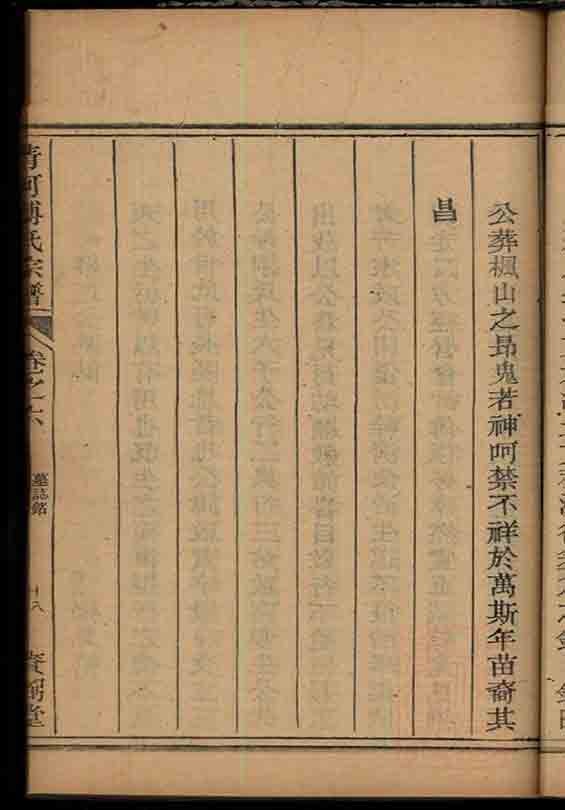 公葬楓山之昻鬼若神呵禁不祥於萬斯年苗裔其
昌
清河傅氏宗譜
卷之六
墓誌銘
十八
賚弼堂